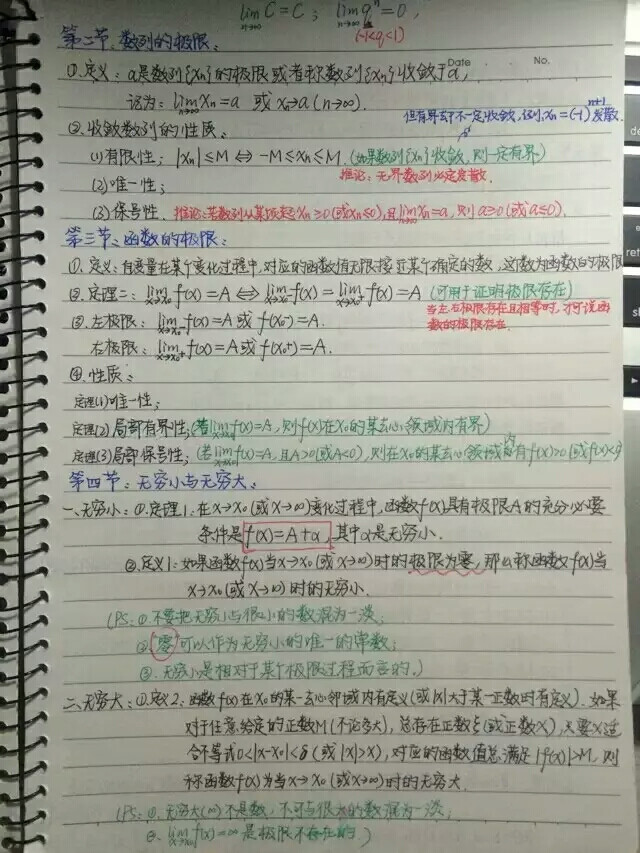 lim n→∞ C = C; lim n→∞ qⁿ = 0,
(-1<q<1)
第二节、数列的极限:
Date No.
①.定义:a是数列{xn}的极限或者称数列{xn}收敛于a,
记为:lim n→∞ xn=a 或 xn→a (n→∞).
但有界却不一定收敛,例xn=(-1)ⁿ⁺¹发散.
②.收敛数列的性质:
(1)有限性; |xn|≤M ⇔ -M≤xn≤M. (如果数列{xn}收敛,则一定有界)
推论:无界数列必定发散.
(2)唯一性;
(3)保号性. 推论:若数列从某项起xn≥0(或xn≤0),且lim n→∞ xn=a,则a≥0(或a≤0).
第三节、函数的极限:
①.定义:自变量在某个变化过程中,对应的函数值无限接近某个确定的数,这个数为函数的极限
②.定理二:lim x→x₀ f(x)=A ⇔ lim x→x₀⁻ f(x)=lim x→x₀⁺ f(x)=A (可用于证明极限存在)
当左.右极限存在且相等时,才可说函
数的极限存在.
③.左极限:lim x→x₀⁻ f(x)=A 或 f(x₀⁻)=A.
右极限:lim x→x₀⁺ f(x)=A 或 f(x₀⁺)=A.
④.性质:
定理(1)唯一性;
定理(2)局部有界性;(若lim x→x₀ f(x)=A,则f(x)在x₀的某去心领域内有界)
定理(3)局部保号性;(若lim x→x₀ f(x)=A,且A>0(或A<0),则在x₀的某去心领域内有f(x)>0(或f(x)<
第四节:无穷小与无穷大:
一、无穷小:①.定理1:在x→x₀(或x→∞)变化过程中,函数f(x)具有极限A的充分必要
条件是f(x)=A+α,其中α是无穷小.
②.定义1:如果函数f(x)当x→x₀(或x→∞)时的极限为零,那么称函数f(x)当
x→x₀(或x→∞)时的无穷小.
(PS:①.不要把无穷小与很小的数混为一谈;
②.零可以作为无穷小的唯一的常数;
③.无穷小是相对于某个极限过程而言的.)
二、无穷大:①.定义2:函数f(x)在x₀的某一去心邻域内有定义(或|x|大于某一正数时有定义).如果
对于任意给定的正数M(不论多大),总存在正数ξ(或正数X),只要x适
合不等式0<|x-x₀|<δ(或|x|>X),对应的函数值总满足|f(x)|>M,则
称函数f(x)为当x→x₀(或x→∞)时的无穷大.
(PS:①.无穷大(∞)不是数,不可与很大的数混为一谈;
②.lim x→x₀ f(x)=∞是极限不存在的.)